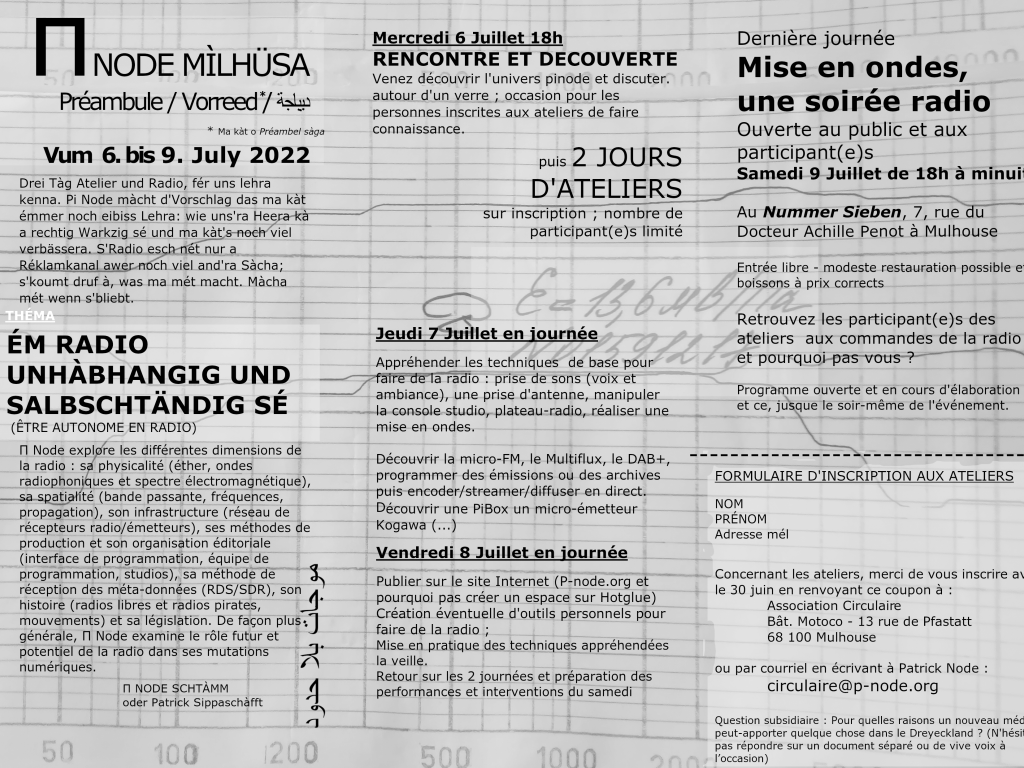 Π NODE MÌLHÜSA
Préambule / Vorreed*/ ديباجة
* Ma kàt o Préambel sàga
Vum 6. bis 9. July 2022
Drei Tàg Atelier und Radio, fér uns lehra
kenna. Pi Node màcht d'Vorschlag das ma kàt
émmer noch eibiss Lehra: wie uns'ra Heera kà
a rechtig Warkzig sé und ma kàt's noch viel
verbàssera. S'Radio esch nét nur a
Réklamkanal awer noch viel and'ra Sàcha;
s'koumt druf à, was ma mét macht. Màcha
mét wenn s'bliebt.
THÉMA
ÉM RADIO
UNHÀBHANGIG UND
SALBSCHTÀNDIG SÉ
(ÊTRE AUTONOME EN RADIO)
Π Node explore les différentes dimensions de
la radio : sa physicalité (éther, ondes
radiophoniques et spectre électromagnétique),
sa spatialité (bande passante, fréquences,
propagation), son infrastructure (réseau de
récepteurs radio/émetteurs), ses méthodes de
production et son organisation éditoriale
(interface de programmation, équipe de
programmation, studios), sa méthode de
réception des méta-données (RDS/SDR), son
histoire (radios libres et radios pirates,
mouvements) et sa législation. De façon plus
générale, Π Node examine le rôle futur et
potentiel de la radio dans ses mutations
numériques.
Π NODE SCHTÀMM
oder Patrick Sippaschàfft
Mercredi 6 Juillet 18h
RENCONTRE ET DECOUVERTE
Venez découvrir l'univers pinode et discuter.
autour d'un verre ; occasion pour les
personnes inscrites aux ateliers de faire
connaissance.
puis 2 JOURS
D'ATELIERS
sur inscription ; nombre de
participant(e)s limité
Jeudi 7 Juillet en journée
Appréhender les techniques de base pour
faire de la radio : prise de sons (voix et
ambiance), une prise d'antenne, manipuler
la console studio, plateau-radio, réaliser une
mise en ondes.
Découvrir la micro-FM, le Multiflux, le DAB+,
programmer des émissions ou des archives
puis encoder/streamer/diffuser en direct.
Découvrir une PiBox un micro-émetteur
Kogawa (...)
Vendredi 8 Juillet en journée
Publier sur le site Internet (P-node.org et
pourquoi pas créer un espace sur Hotglue)
Création éventuelle d'outils personnels pour
faire de la radio ;
Mise en pratique des techniques appréhendées
la veille.
Retour sur les 2 journées et préparation des
performances et interventions du samedi
Dernière journée
Mise en ondes,
une soirée radio
Ouverte au public et aux
participant(e)s
Samedi 9 Juillet de 18h à minuit
Au Nummer Sieben, 7, rue du
Docteur Achille Penot à Mulhouse
Entrée libre - modeste restauration possible et
boissons à prix corrects
Retrouvez les participant(e)s des
ateliers aux commandes de la radio
et pourquoi pas vous ?
Programme ouverte et en cours d'élaboration
et ce, jusque le soir-même de l'événement.
FORMULAIRE D'INSCRIPTION AUX ATELIERS
NOM
PRÉNOM
Adresse mél
Concernant les ateliers, merci de vous inscrire av
le 30 juin en renvoyant ce coupon à :
Association Circulaire
Bât. Motoco - 13 rue de Pfastatt
68 100 Mulhouse
ou par courriel en écrivant à Patrick Node :
circulaire@p-node.org
Question subsidiaire : Pour quelles raisons un nouveau méd
peut-apporter quelque chose dans le Dreyeckland ? (N'hésit
pas répondre sur un document séparé ou de vive voix à
l'occasion)
50 100 200 500 1000 2000